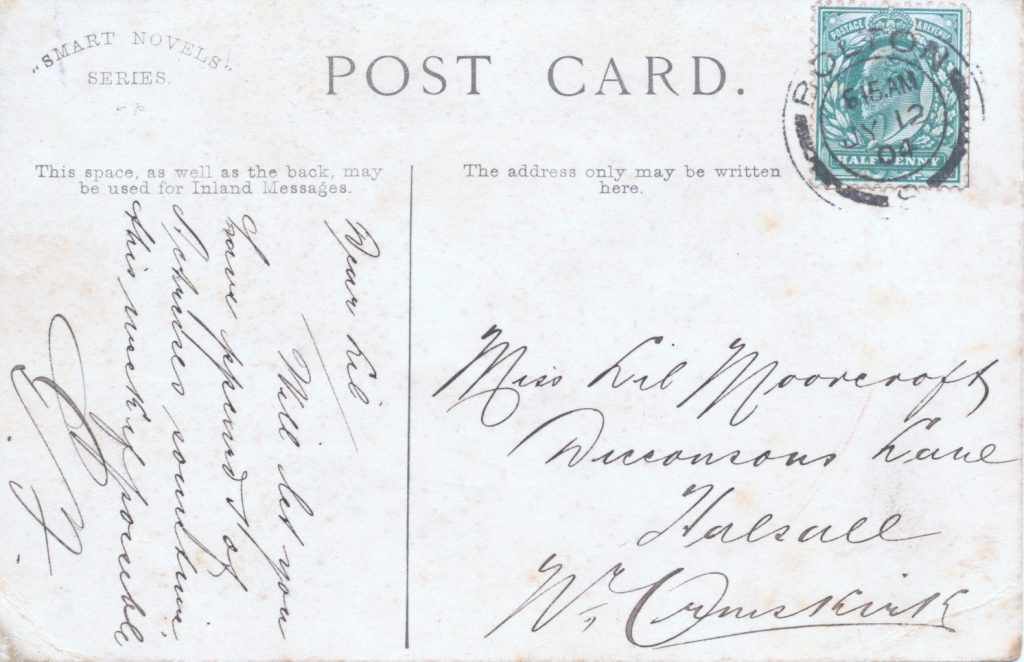 "SMART NOVELS"
SERIES.
POST CARD.
POSTAGE & REVENUE
HALFPENNY
BOLTON
6 15 AM
JY 12
04
S
This space, as well as the back, may
be used for Inland Messages.
The address only may be written
here.
Dear Lil
Will let you
have of
Pictures sometime
this week if possible
Miss Lil Moorcroft
Dicconsons Lane
Halsall
Nr Ormskirk